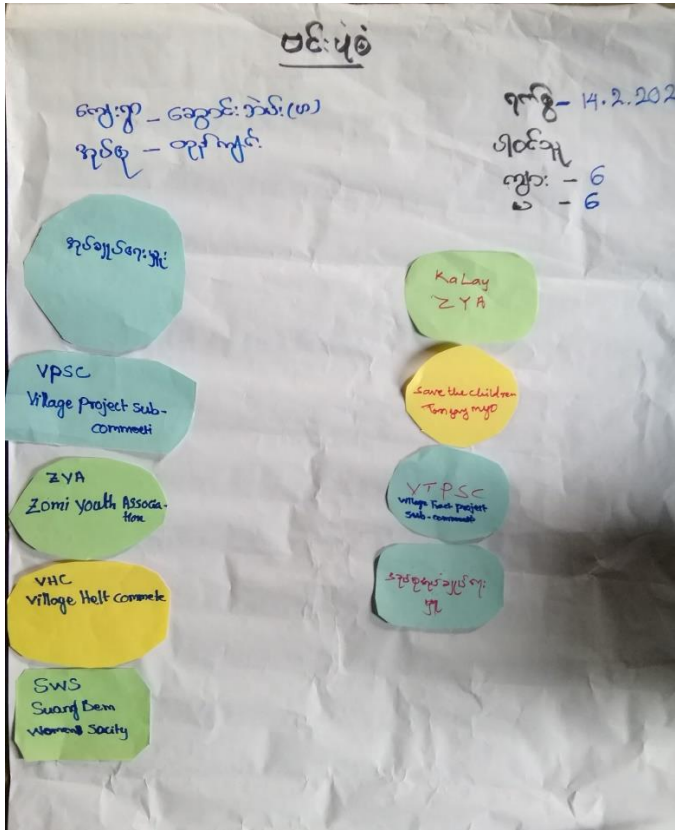 ဗင်းပုံစံ
ကျေးရွာ - ဆွောင်းဘဲမ်း(ဟ)
အုပ်စု - ထုန်ကျင်း
ရက်စွဲ - 14.2.202
ပါဝင်သူ
ကျား - 6
မ - 6
အုပ်ချုပ်ရေးမှူး
VPSC
Village Project sub-
commeeti
ZYA
Zomi Youth Associa-
tion
VHC
Village Helt commete
SWS
Suang Bem
Womens Socity
KaLay
ZYA
Save the children
Tonzang myo
VTPSC
Village Tract Project
Sub-commeeti
အုပ်စုအုပ်ချုပ်ရေး
မှူး